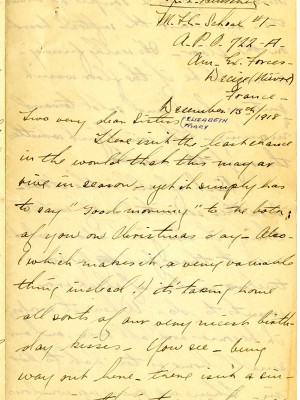 M.T.C. School #1-
A.P.O. 722-A-
Am. Ex. Forces-
Decize (Nievre)
France-
December 13th/1918
Two very dear Sisters ELIZABETH
MARY
There isn't the least chance
in the world that this may ar
rive in season - yet it simply has
to say "Good morning" to the both
of you on Christmas day - Also-
which makes it a very valuable
thing indeed! it's taking home
all sorts of our very nicest birth-
day kisses - You see - being
way out here - there isn't a sin-